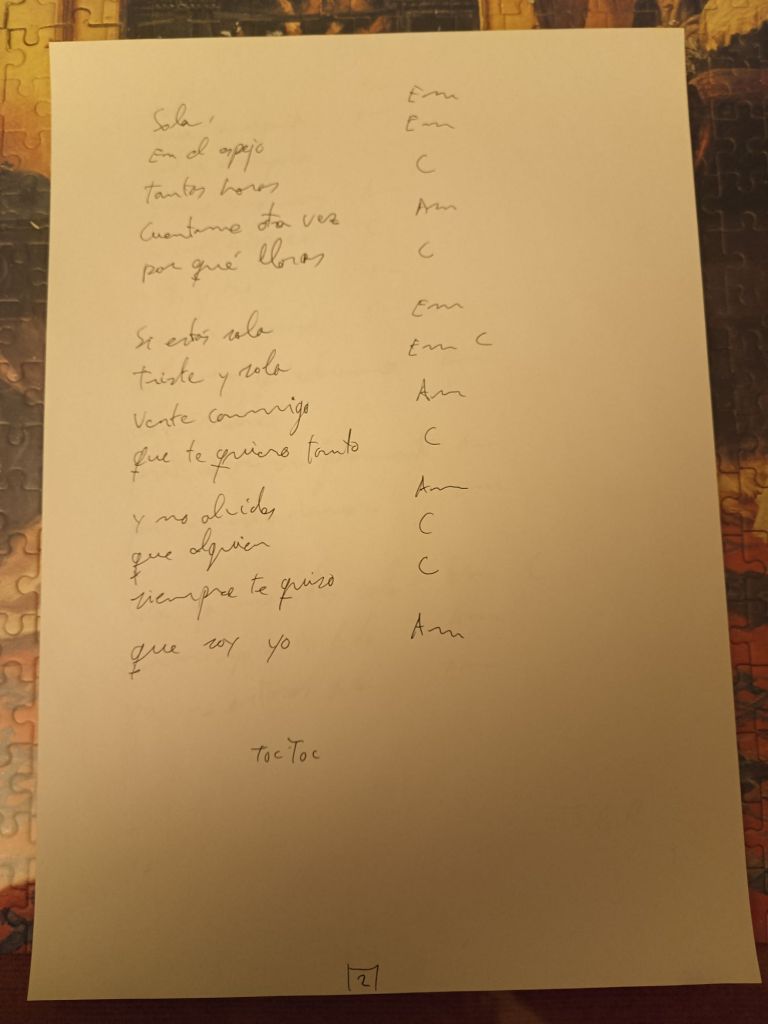 Sola, Em
En el espejo Em
tantas horas C
Cuentame otra vez Am
por qué lloras C
Si estás sola Em
triste y sola Em C
vente conmigo Am
que te quiero tanto C
y no olvides Am
que alguien C
siempre te quiso C
que soy yo Am
Toc Toc
2